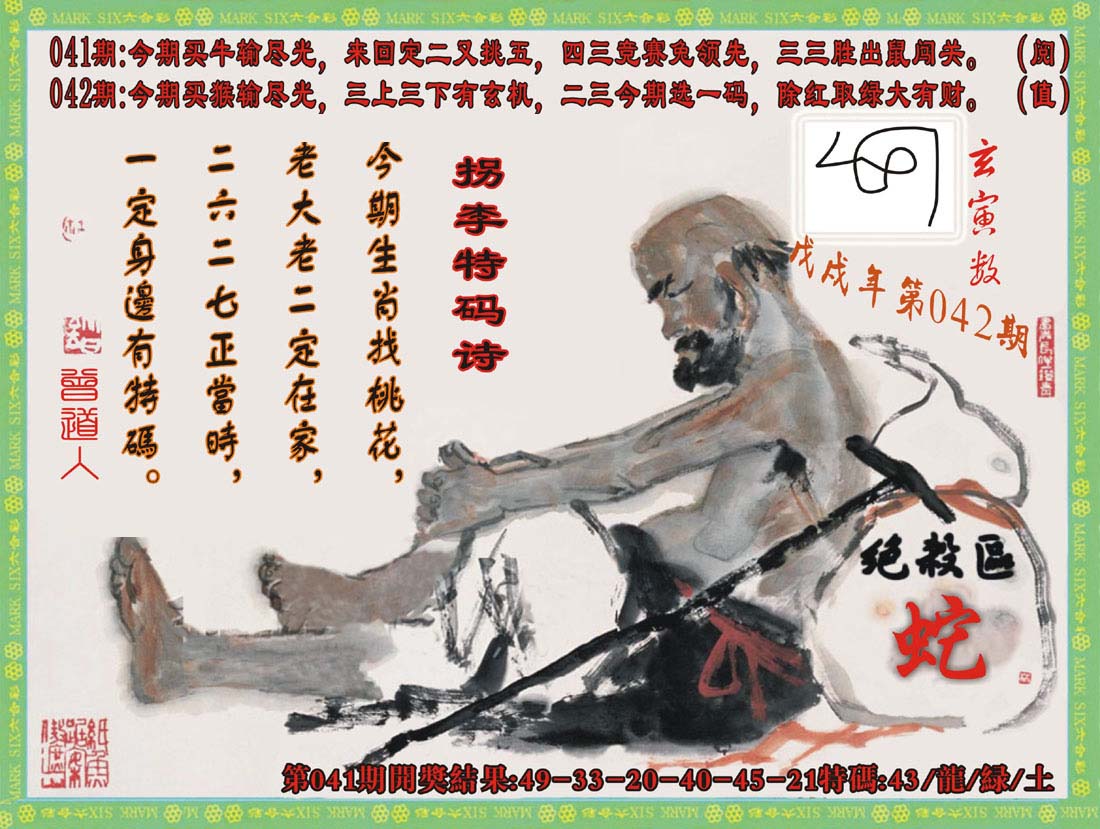 MARK SIX六合彩
041期:今期买牛输尽光，来回定二又挑五，四三竞赛兔领先，三三胜出鼠闯关。（阅）
042期:今期买猴输尽光，三上三下有玄机，二三今期选一码，除红取绿大有财。（值）
玄寅数
戊戌年第042期
拐李特码诗
今期生肖找桃花，
老大老二定在家，
二六二七正當時，
一定身邊有特碼。
曾道人
绝殺區
蛇
第041期開獎結果:49-33-20-40-45-21特碼:43/龍/緑/土